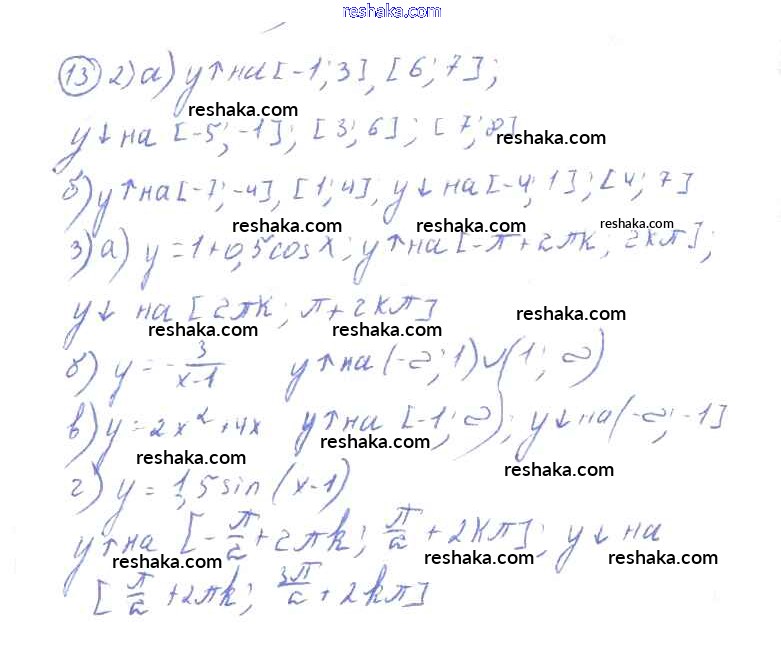 reshaka.com
13 2) а) y↑ на [-1; 3], [6; 7];
reshaka.com
y↓ на [-5; -1]; [3; 6]; [7; 8]
reshaka.com
б) y↑ на [-7; -4], [1; 4], y↓ на [-4; 1]; [4; 7]
reshaka.com reshaka.com reshaka.com
3) а) y = 1 + 0,5cos x; y↑ на [-π + 2πk; 2kπ];
y↓ на [2πk; π + 2kπ]
reshaka.com reshaka.com reshaka.com
б) y = -3/(x-1) y↑ на (-∞; 1) ∪ (1; ∞)
reshaka.com reshaka.com
в) y = 2x² + 4x y↑ на [-1; ∞); y↓ на (-∞; -1]
reshaka.com reshaka.com reshaka.com
г) y = 1,5 sin (x-1)
y↑ на [-π/2 + 2πk; π/2 + 2kπ]; y↓ на
reshaka.com reshaka.com reshaka.com
[π/2 + 2πk; 3π/2 + 2kπ]